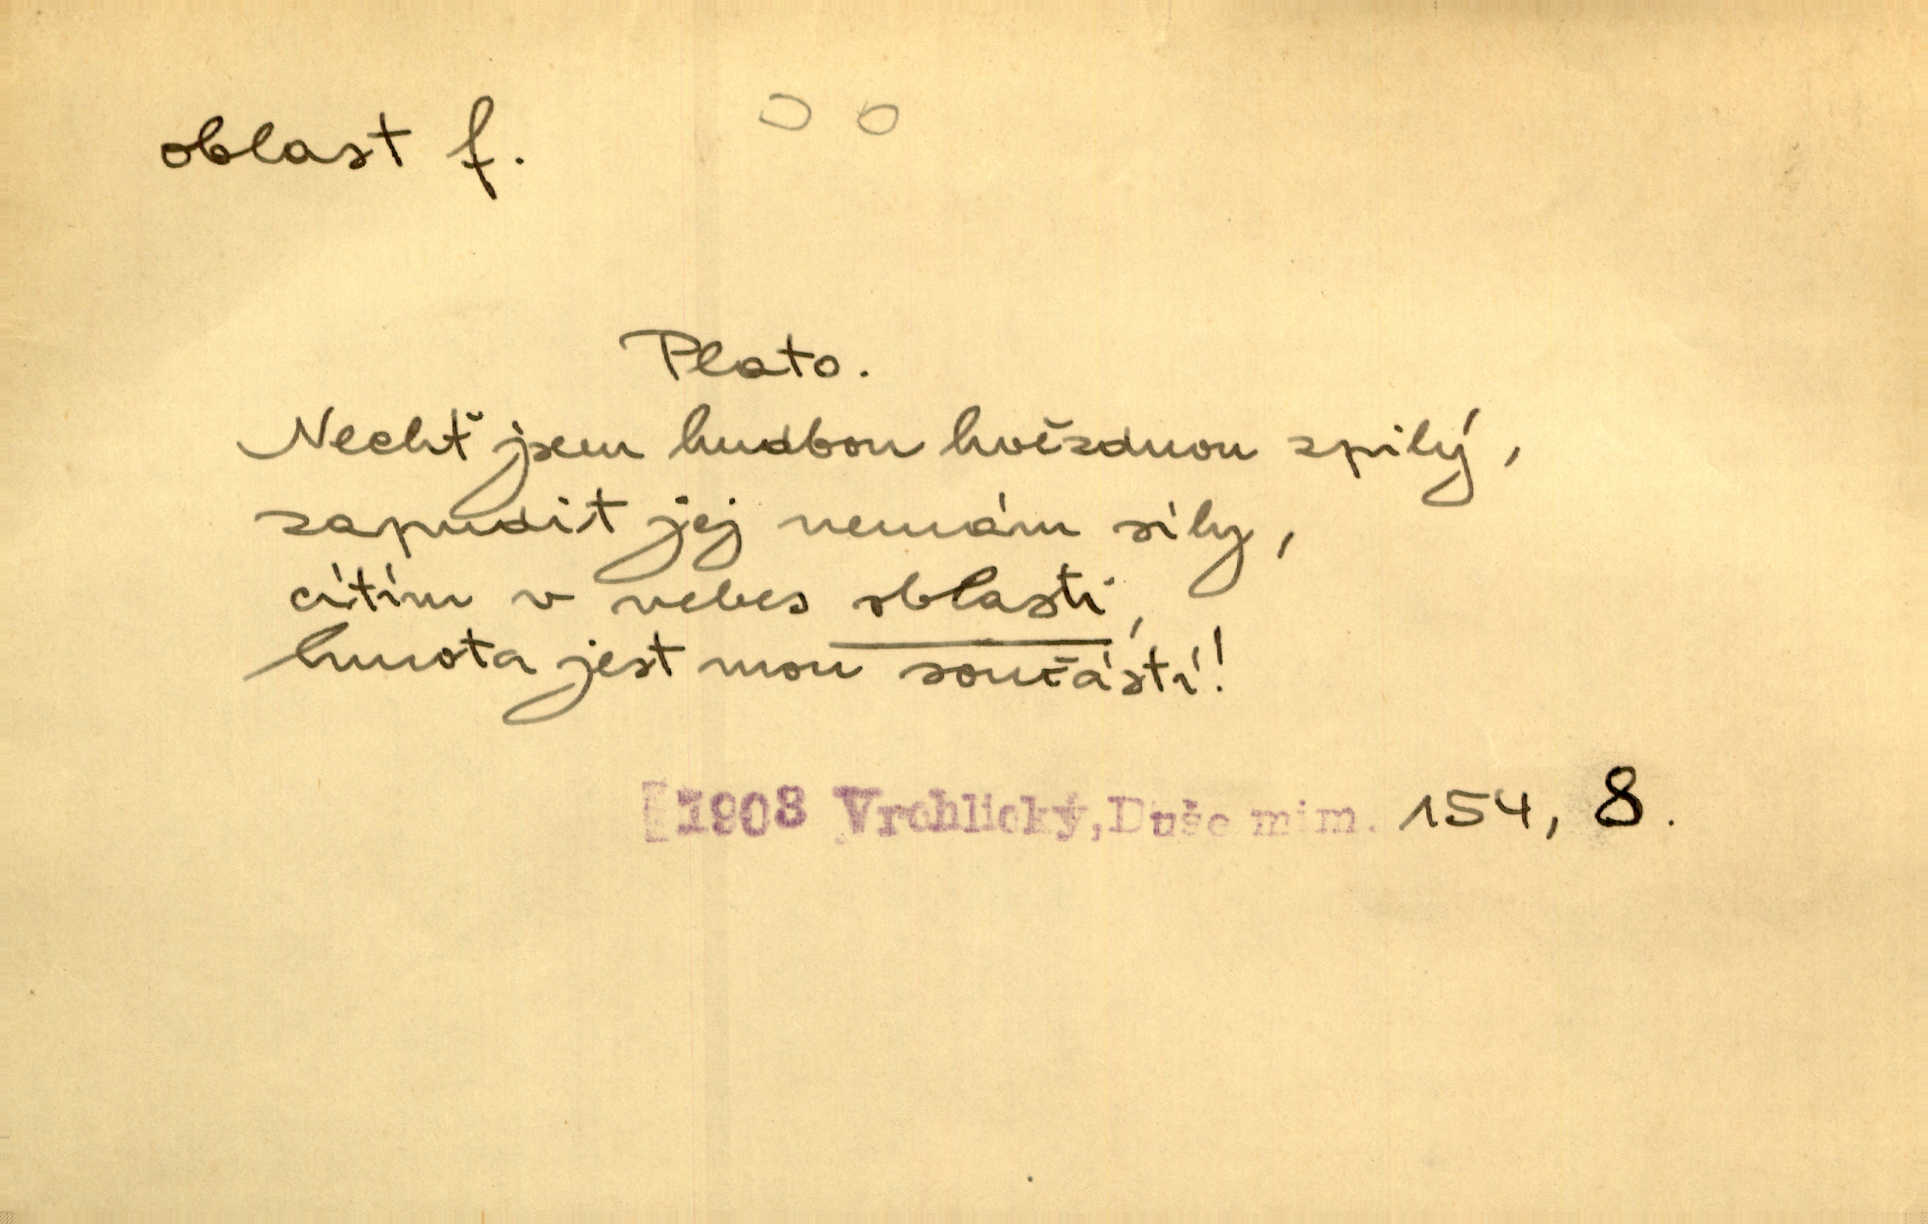 oblast f.
Plato.
Nechť jsem hudbou hvězdnou zpilý,
zapudit jej nemám síly,
cítím v nebes oblasti,
hmota jest mou součástí!
[1908 Vrchlický, Duše mim. 154, 8.